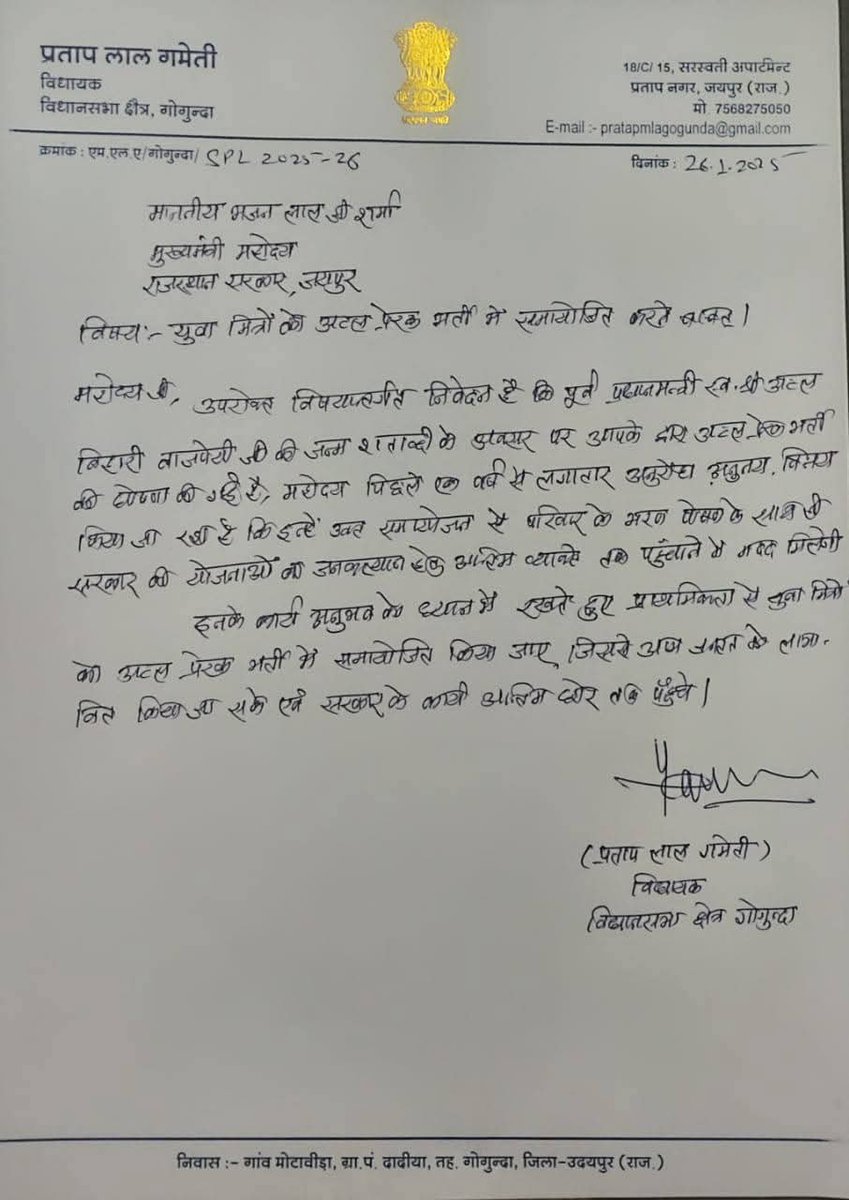 प्रताप लाल गमेती
विधायक
विधानसभा क्षैत्र, गोगुन्दा
18/C/ 15, सरस्वती अपार्टमेन्ट
प्रताप नगर, जयपुर (राज.)
मो. 7568275050
E-mail :- pratapmlagogunda@gmail.com
क्रमांक : एम.एल.ए/गोगुन्दा/ SPL 2025-26
दिनांक : 26.1.2025
माननीय भजन लाल जी शर्मा
मुख्यमंत्री महोदय
राजस्थान सरकार, जयपुर
विषय:- युवा मित्रों को अटल प्रेरक भर्ती में समायोजित करने बाबत।
महोदय जी, उपरोक्त विषयान्तर्गत निवेदन है कि पूर्व प्रधानमन्त्री स्व. श्री अटल
बिहारी वाजपेयी जी की जन्म शताब्दी के अवसर पर आपके द्वारा अटल प्रेरक भर्ती
की घोषणा की गई है, महोदय पिछले एक वर्ष से लगातार अनुरोध अनुनय, विनय
किया जा रहा है कि इन्हें उक्त समायोजन से परिवार के भरण पोषण के साथ ही
सरकार की योजनाओं का जनकल्याण हेतु अन्तिम व्यक्ति तक पहुँचाने में मदद मिलेगी
इनके कार्य अनुभव को ध्यान में रखते हुए प्राथमिकता से युवा मित्रों
को अटल प्रेरक भर्ती में समायोजित किया जाए, जिससे आम जनता को लाभा-
वित किया जा सके एवं सरकार के कार्य अन्तिम छोर तक पहुँचे।
(प्रताप लाल गमेती)
विधायक
विधानसभा क्षेत्र गोगुन्दा
निवास :- गांव मोटावीड़ा, ग्रा.पं. दादीया, तह. गोगुन्दा, जिला-उदयपुर (राज.)